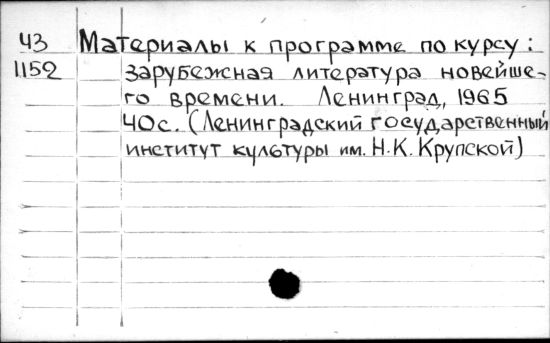 Ч3 Материалы к программе по курсу:
1152 зарубежная литература новейше-
го времени. Ленинград, 1965
40с. (Ленинградский государственный
институт культуры им. Н.К. Крупской)